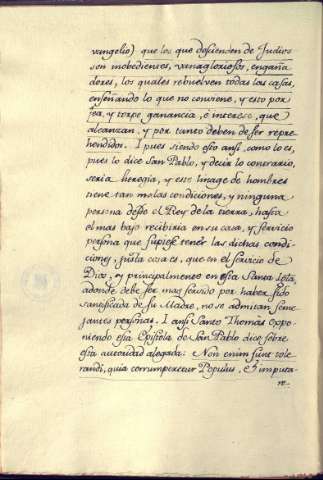 vangelio) que los que descienden de Judios
son inobedientes, vanagloriosos, engaña
dores, los quales rebuelven todas las casas,
enseñando lo que no conviene, y esto por
fea, y torpe ganancia, e interese, que
alcanzan, y por tanto deben de ser repre
hendidos. I pues siendo esto ansi, como lo es,
pues lo dice San Pablo, y decir lo contrario,
seria heregia, y este linage de hombres
tiene tan malas condiciones, y ninguna
persona desde el Rey de la tierra, hasta
el mas bajo recibiria en su casa, y servicio
persona que supiese tener las dichas condi
ciones, justa cosa es, que en el servicio de
Dios, y principalmente en esta Santa Igla,
adonde debe ser mas servido por haber sido
santificada de su Madre, no se admitan seme
jantes personas. I ansi Santo Thomas expo
niendo esta Epistola de San Pablo dice sobre
esta autoridad alegada: Non enim sunt tole
randi, quia corrumperetur Populus, et imputa
re-